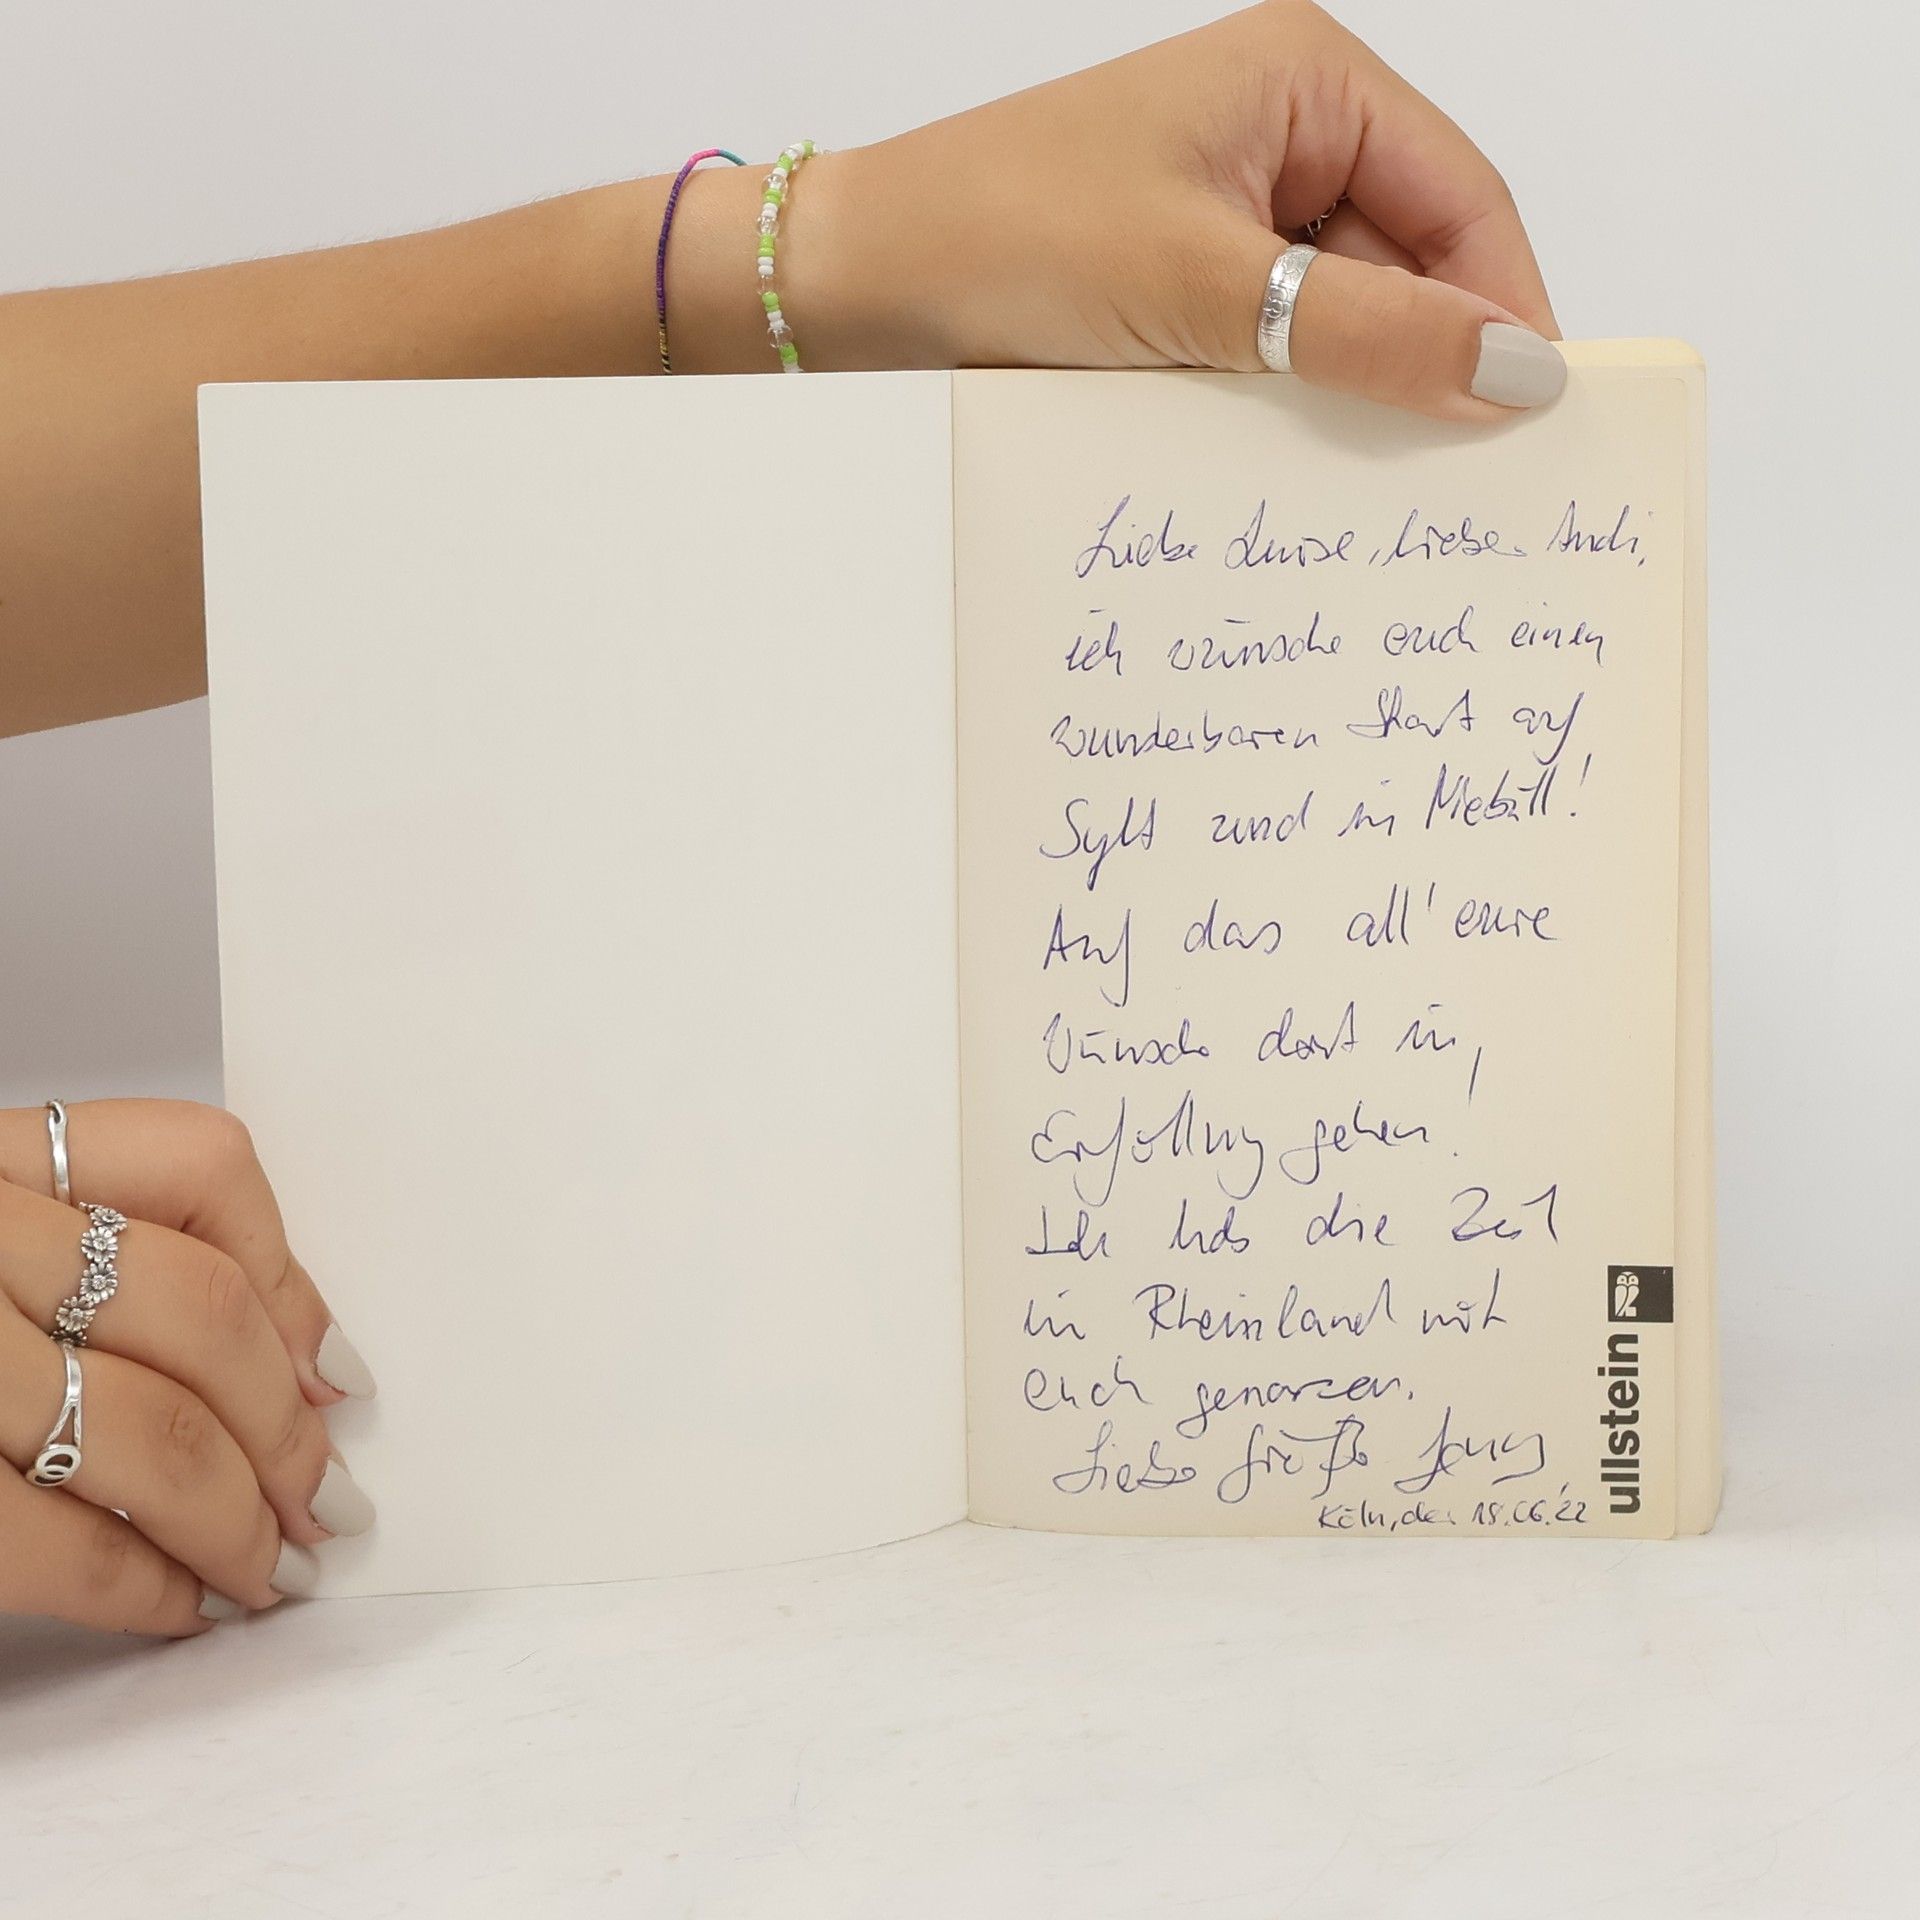 Liebe Luise, lieber Andi,
ich wünsche euch einen
wunderbaren Start auf
Sylt und in Niebüll!
Auf das all' eure
Wünsche dort in
Erfüllung gehen!
Ich hab die Zeit
im Rheinland mit
euch genossen.
Liebe Grüße
Köln, den 18.06.'22
ullstein